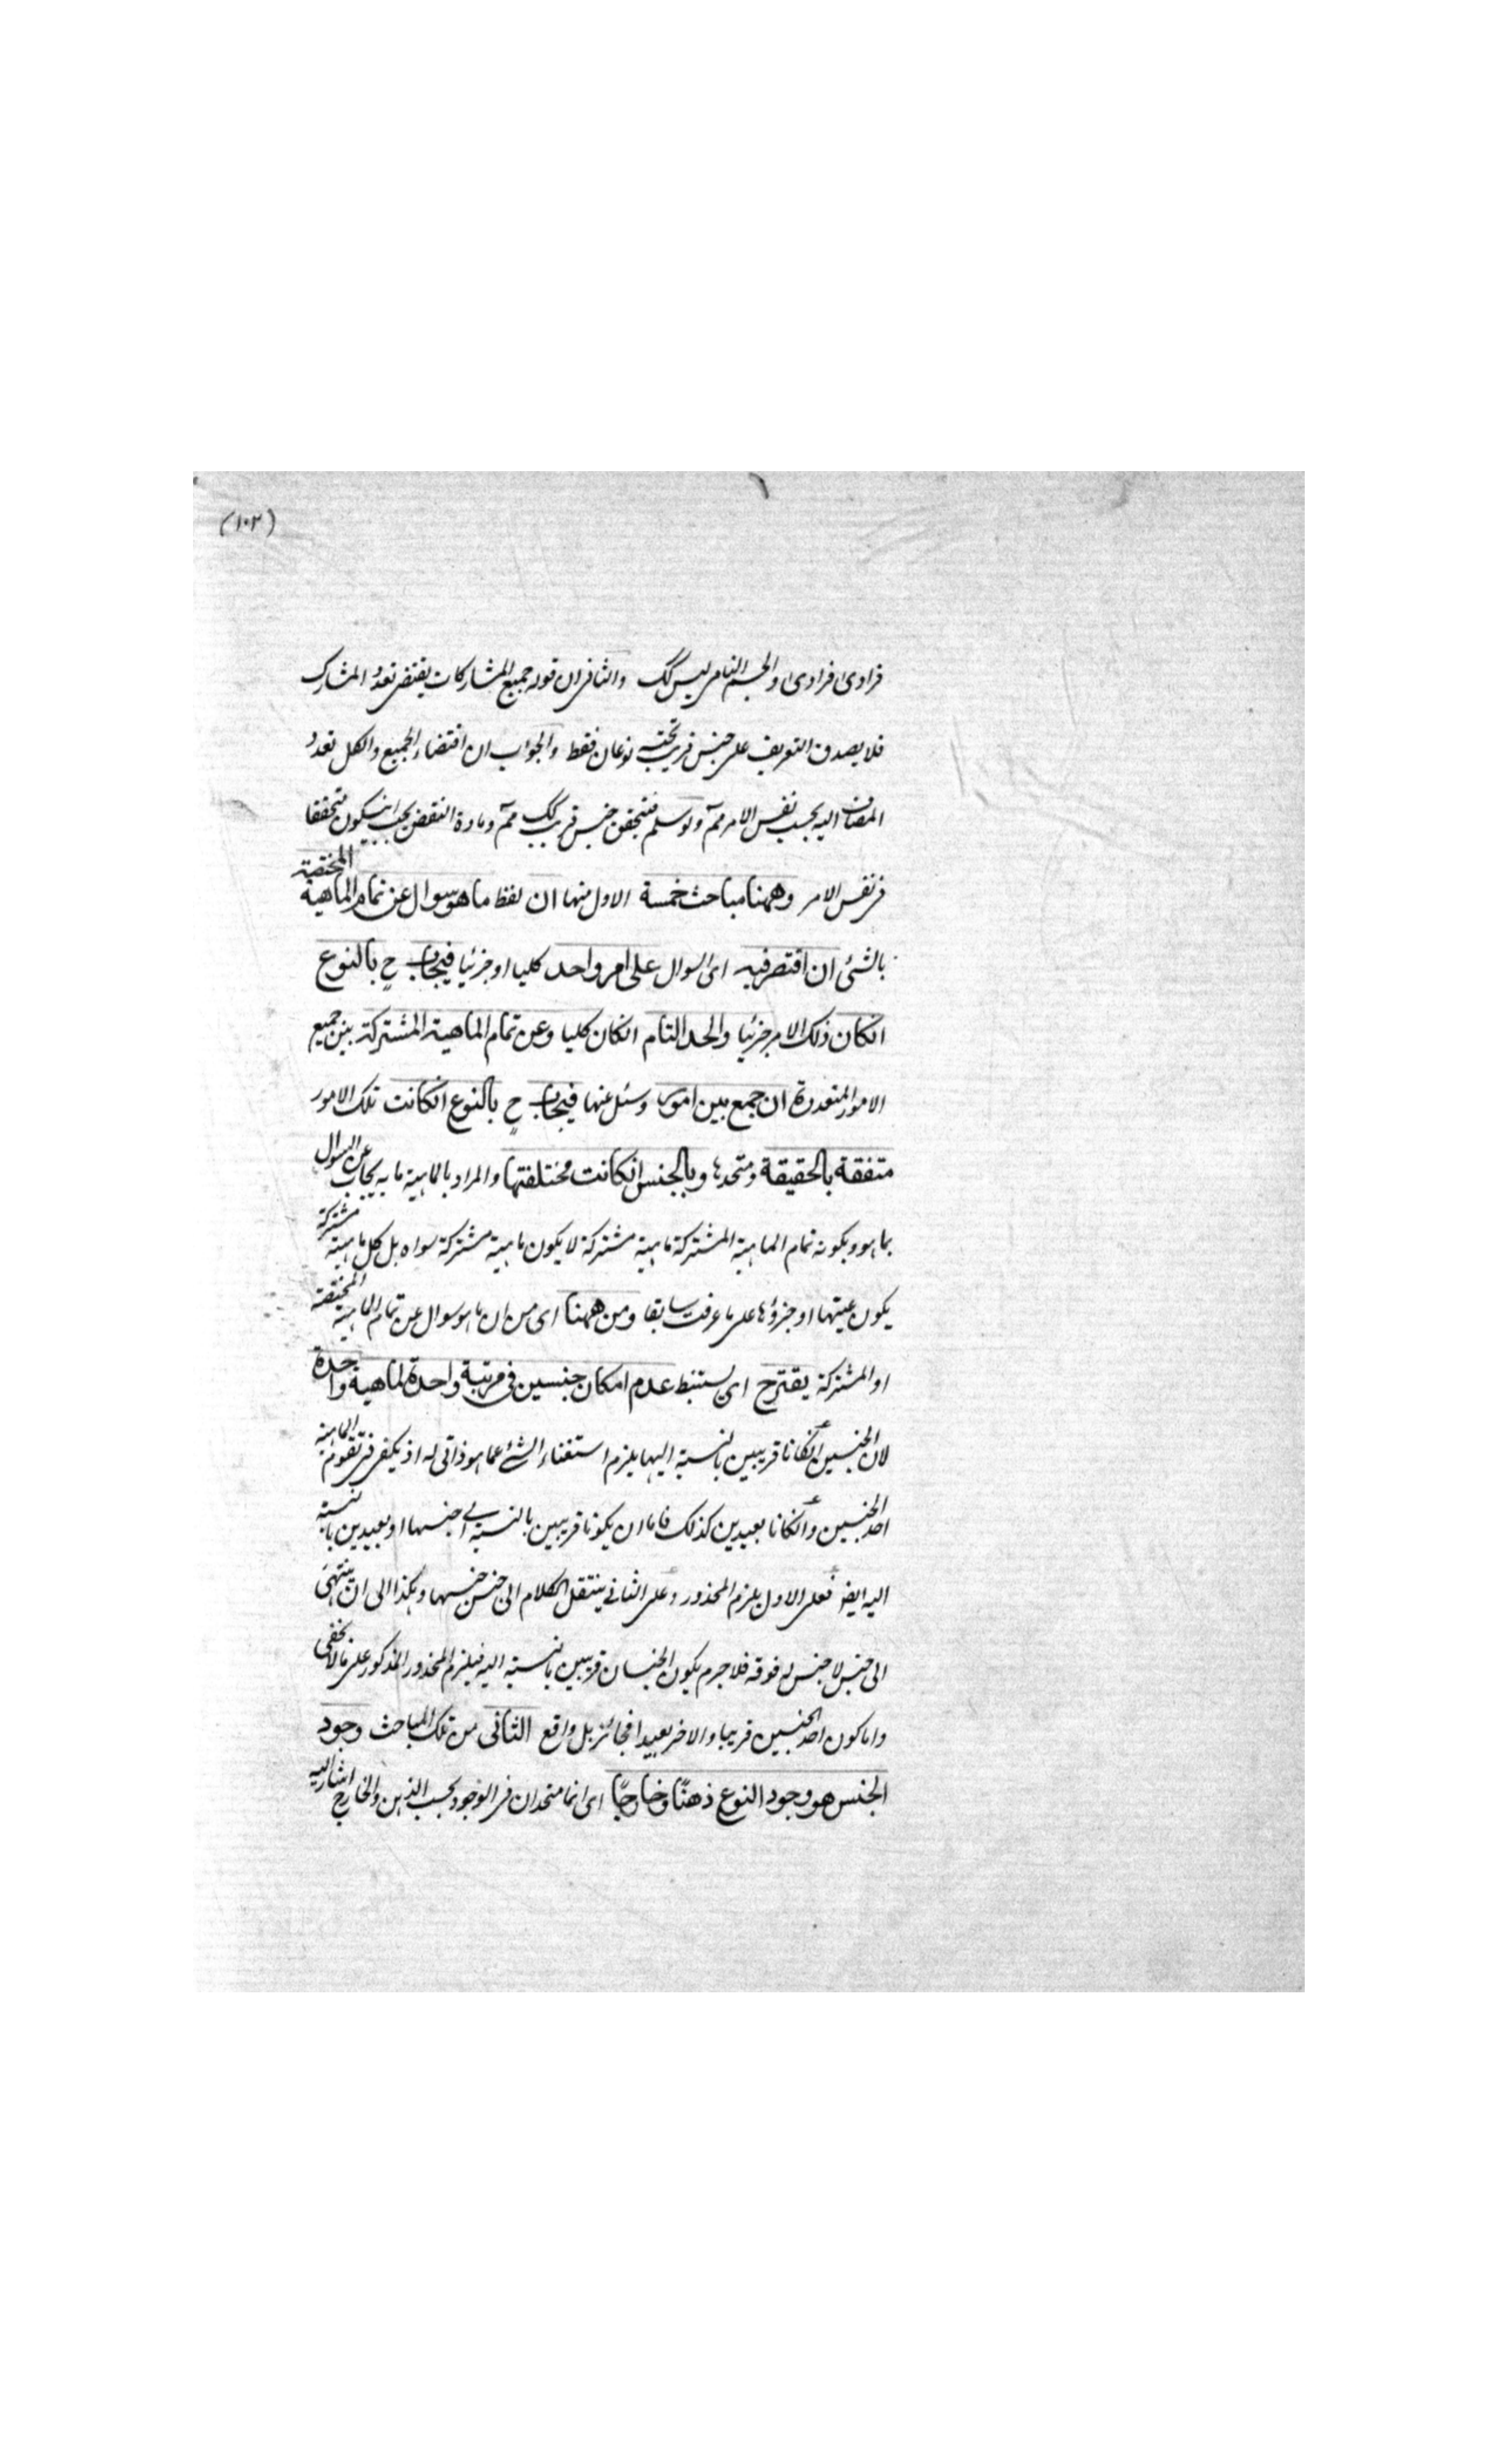 (١٠٢)
فرادى فرادى والجسم النامى ليس كك والثانى ان قوله جميع المشاركات يقتضى تعدد المشارك
فلا يصدق التعريف على جنس قريب تحته نوعان فقط والجواب ان اقتضاء الجميع والكل تعدد
المضاف اليه بحسب نفس الامر مم ولو سلم فتحقق جنس قريب كك مم ومادة النقض يجب ان يكون متحققا
فى نفس الامر وههنا مباحث خمسة الاول منها ان لفظ ما هو سوال عن تمام الماهية المختصة
بالشئ ان اقتصر فيه اى السوال على امر واحد كليا او جزئيا فيجاب ح بالنوع
انكان ذلك الامر جزئيا والحد التام انكان كليا وعن تمام الماهية المشتركة بين جميع
الامور المتعددة ان جمع بين امور وسئل عنها فيجاب ح بالنوع انكانت تلك الامور
متفقة بالحقيقة ومتحدها وبالجنس انكانت مختلفتها والمراد بالماهية ما به يجاب عن السوال
بما هو وبكونه تمام الماهية المشتركة ماهية مشتركة لا يكون ماهية مشتركة سواه بل كل ماهية مشتركة
يكون عينها او جزؤها على ما عرفت سابقا ومن ههنا اى من ان ما هو سوال عن تمام الماهية المختصة
او المشتركة يقترح اى يستنبط عدم امكان جنسين فى مرتبة واحدة لماهية واحدة
لان الجنسين انكانا قريبين بالنسبة اليها يلزم استغناء الشئ عما هو ذاتى له اذ يكفى فى تقوم الماهية
احد الجنسين وانكانا بعيدين كذلك فاما ان يكونا قريبين بالنسبة الى جنسها او بعيدين بالنسبة
اليه ايضا فعلى الاول يلزم المحذور وعلى الثانى ينتقل الكلام الى جنس جنسها وهكذا الى ان ينتهى
الى جنس لا جنس له فوقه فلا جرم يكون الجنسان قريبين بالنسبة اليه فيلزم المحذور المذكور على ما لا يخفى
واما كون احد الجنسين قريبا والاخر بعيدا فجائز بل واقع الثانى من تلك المباحث وجود
الجنس هو وجود النوع ذهنًا وخارجًا اى انما متحدان فى الوجود بحسب الذهن والخارج اشار اليه